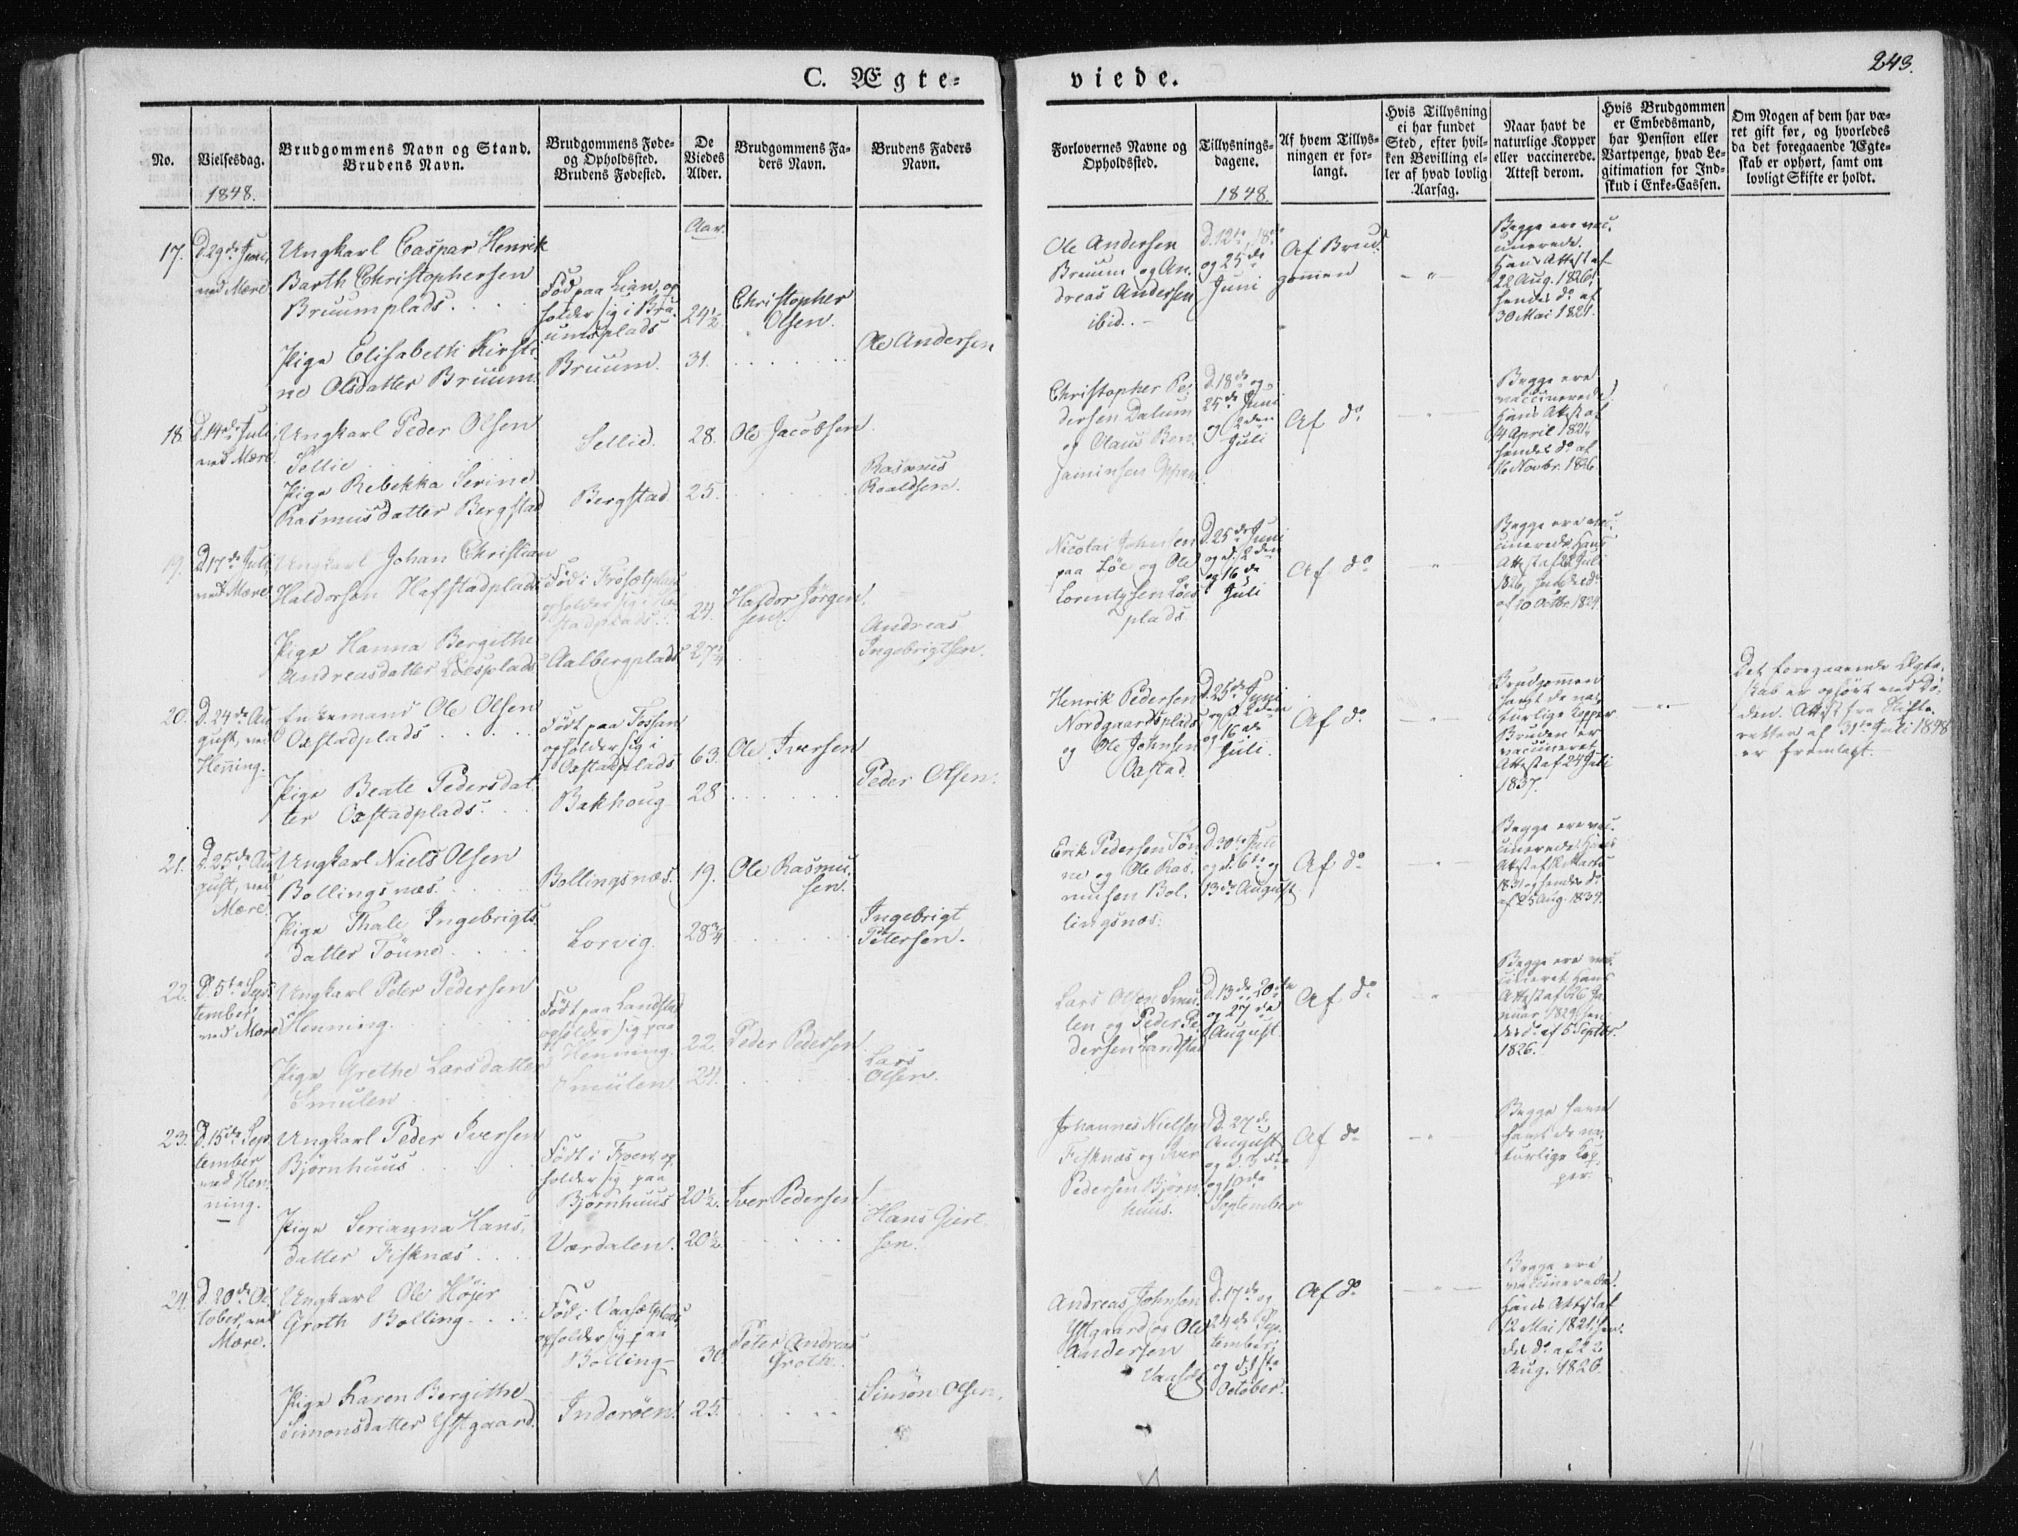 243.
C. Ægte=
viede.
No.
Vielsesdag.
1848.
Brudgommens Navn og Stand.
Brudens Navn.
Brudgommens Føde-
og Opholdssted.
Brudens Fødested.
De
Viedes
Alder.
Brudgommens Fa-
ders Navn.
Brudens Faders
Navn.
Forlovernes Navne og
Opholdssted.
Tillysnings-
dagene.
1848.
Af hvem Tillys-
ningen er for-
langt.
Hvis Tillysning
ei har fundet
Sted, efter hvil-
ken Bevilling el-
ler af hvad lovlig
Aarsag.
Naar havt de
naturlige Kopper
eller vaccinerede.
Attest derom.
Hvis Brudgommen
er Embedsmand,
har Pension eller
Vartpenge, hvad Le-
gitimation for Ind-
skud i Enke-Cassen.
Om Nogen af dem har væ-
ret gift før, og hvorledes
da det foregaaende Ægte-
skab er ophørt, samt om
lovligt Skifte er holdt.
17.
D. 29de Juni,
ved Mære
Ungkarl Caspar Henrik
Barth Christophersen
Bruumplads
Pige Elisabeth Kirsti-
ne Olsdatter Bruum.
Født paa Lian, op
holder sig i Bru-
umsplads
Bruum.
Aar.
24½
31.
Christopher
Olsen.
Ole Andersen
Ole Andersen
Bruum og An-
dreas Andersen
ibid.
D. 12te, 18de
og 25de
Juni
Af Brud-
gommen
Begge ere vac-
cinerede.
Hans Attest af
22 Aug. 1826,
hendes do af
30 Mai 1821.
18.
D. 14de Juli
ved Mære.
Ungkarl Peder Olsen
Sellie
Pige Rebekka Serine
Rasmusdatter Bergstad
Sellie.
Bergstad
28.
25.
Ole Jacobsen
Rasmus
Roaldsen.
Christopher Pe-
dersen Dalum
og Olaus Ben-
jaminsen
D. 18de og
25de Juni
og 2den
Juli
Af do
Begge ere
vaccinerede.
Hans Attest af
4 April 1821,
hendes do af
16 Novbr. 1826.
19.
D. 17de Juli,
ved Mære
Ungkarl Johan Christian
Haldorsen Hafstadplads
Pige Hanna Bergithe
Andreasdatter Löesplads
Født i Frosetplads
opholder sig i Haf-
stadplads.
Aalbergplads
24.
27¼
Haldor Jörgen-
sen.
Andreas
Ingebrigtsen.
Nicolai Johnsen
paa Löe og Ole
Lorentzsen Löes-
plads
D. 25de Juni
og d. 2den
og 16de
Juli
Af do
Begge ere vac-
cinerede Hans
Attest af 28 Juli
1826, hendes do
af 20 Octbr. 1824.
20.
D. 24de Au-
gust, ved
Henning.
Enkemand Ole Olsen
Oxstadplads
Pige Beate Pedersdat-
ter Oxstadplads.
Født paa Fossen
opholder sig i
Oxstadplads
Bakhoug
63.
28
Ole Iversen
Peder Olsen.
Henrik Pedersen
Nordgaardsplads
og Ole Johnsen
Oxstad.
D. 25de Juni
og d. 2den
og 16de
Juli.
Af do
Brudgommen
havt de na-
turlige Kopper
Bruden er
vaccineret
Attest af 24 Juli
1837.
Det foregaaende Ægte-
skab er ophørt ved Dö-
den. Attest fra Skifte-
retten af 31te Juli 1848
er fremlagt.
21.
D. 25de Au-
gust, ved
Mære.
Ungkarl Niels Olsen
Bollingsnæs.
Pige Thale Ingebrigts-
datter Tönne
Bollingsnæs.
Lorvig.
19.
28¾
Ole Rasmus-
sen.
Ingebrigt
Petersen.
Erik Pedersen Tön-
ne og Ole Ras-
musen Bol-
lingsnæs.
D. 30te Juli
og d. 6te og
13de August
Af do
Begge ere vac-
cinerede Hans
Attest af 12 Marts
1831 og hendes do
af 25 Aug. 1834.
22.
D. 5te Sep-
tember,
ved Mære
Ungkarl Peter Pedersen
Henning.
Pige Grethe Larsdatter
Smulen
Født paa Landstad
opholder sig paa
Henning.
Smulen
22.
24.
Peder Pedersen
Lars
Olsen.
Lars Olsen Smu-
len og Peder Pe-
dersen Landstad
D. 13de, 20de
og 27de
August
Af do
Begge ere vac-
cineret Hans
Attest af 26 Ja-
nuar 1829, hen-
des do af 5 Septbr.
1826.
23.
D. 15de Sep-
tember
ved Hen-
ning.
Ungkarl Peder Iversen
Bjørnhuus
Pige Serianna Hans-
datter Fisknæs
Født i Froen, op-
holder sig paa
Bjørnhuus
Værdalen.
20½.
20½
Iver Pedersen
Hans Giert-
sen.
Johannes Nielsen
Fisknæs og Iver
Pedersen Bjørn-
huus.
D. 27de
August
og d. 3die
og 10de
September
Af do
Begge have
havt de na-
turlige Kop-
per.
24.
D. 20de Oc-
tober, ved
Mære.
Ungkarl Ole Højer
Groth Bolling
Pige Karen Bergithe
Simonsdatter Ystgaard.
Født i Vaasætplads
opholder sig paa
Bolling
Inderöen.
30.
25.
Peter Andreas
Groth.
Simön Olsen.
Andreas Johnsen
Ystgaard og Ole
Andersen
D. 17de og
24de Sep-
tember,
og d. 1ste
October.
Af do
Begge ere
vaccinerede.
Hans Attest af
12 Mai 1821, hen-
des do af 22
Aug. 1826.